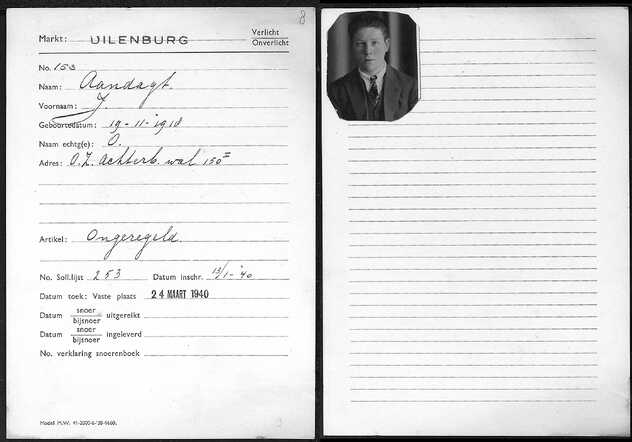 8
Markt: UILENBURG Verlicht
Onverlicht
No. 153
Naam: Aandagt.
Voornaam: J.
Geboortedatum: 19-11-1918
Naam echtg(e): O.
Adres: O.Z. Achterb. wal 150 II
Artikel: Ongeregeld.
No. Soll.lijst 253 Datum inschr. 13/1-'40
Datum toek: Vaste plaats 24 MAART 1940
Datum snoer
bijsnoer uitgereikt
Datum snoer
bijsnoer ingeleverd
No. verklaring snoerenboek